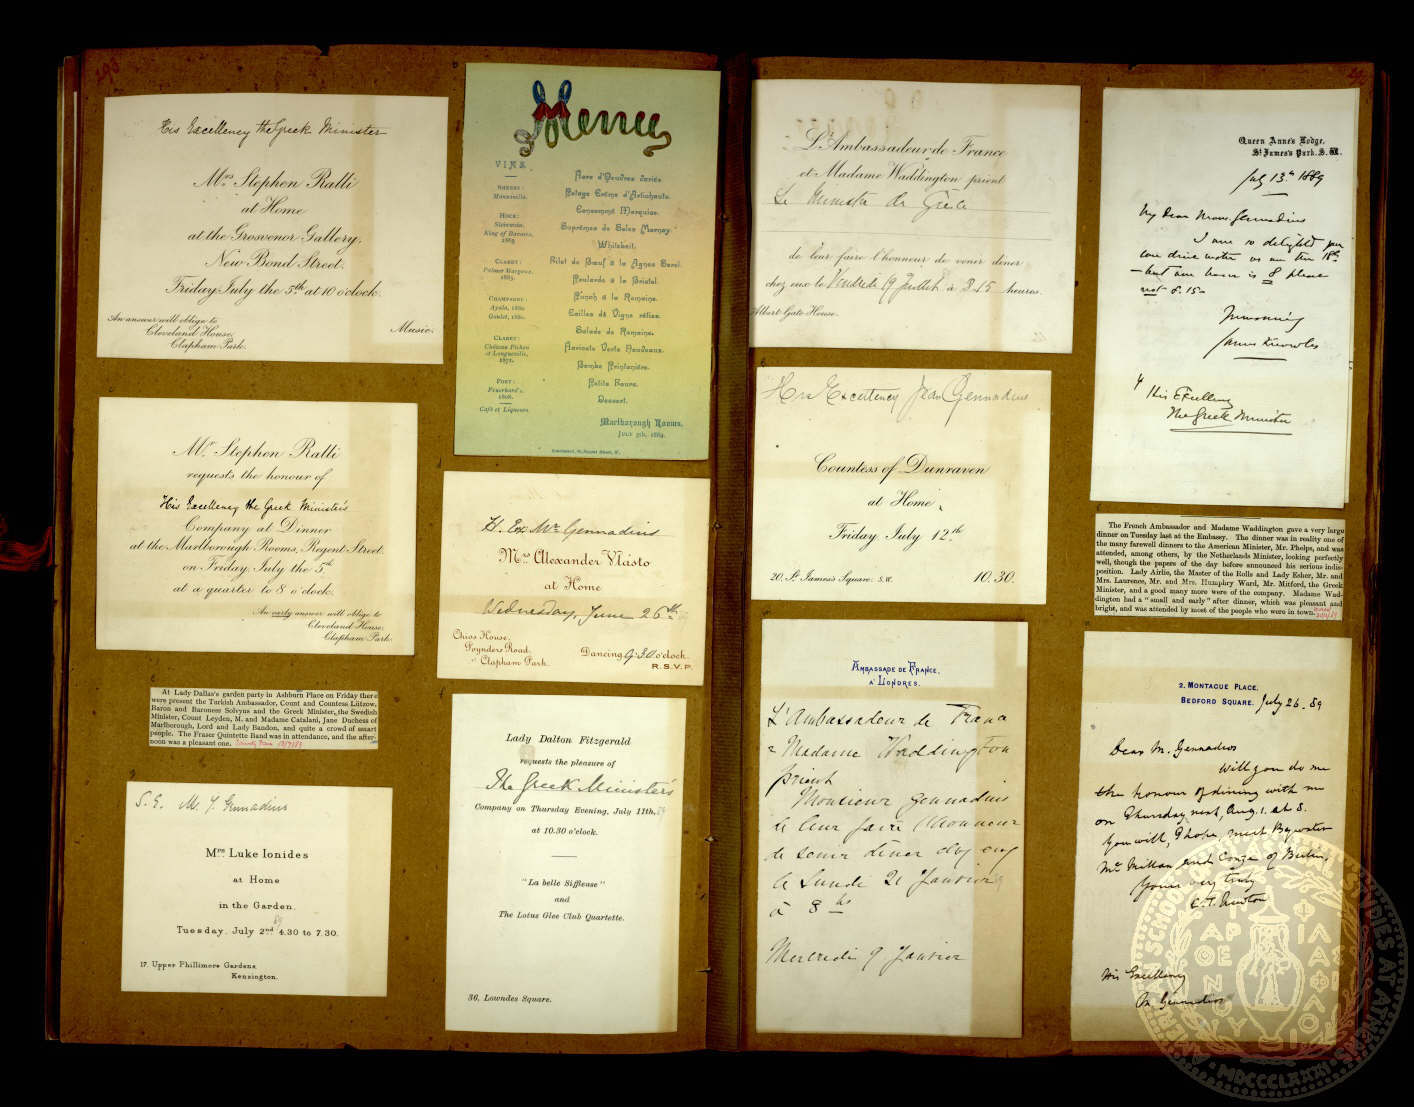 293
His Excellency the Greek Minister
Mrs. Stephen Ralli
at Home
at the Grosvenor Gallery,
New Bond Street.
Friday July the 5th at 10 o'clock.
An answer will oblige to
Cleveland House,
Clapham Park.
Music.
Mr. Stephen Ralli
requests the honour of
His Excellency the Greek Minister's
Company at Dinner
at the Marlborough Rooms, Regent Street.
on Friday July the 5th
at a quarter to 8 o'clock.
An early answer will oblige to
Cleveland House,
Clapham Park.
At Lady Dallas's garden party in Ashburn Place on Friday there
were present the Turkish Ambassador, Count and Countess Lützow,
Baron and Baroness Solvyns and the Greek Minister, the Swedish
Minister, Count Leyden, M. and Madame Catalani, Jane Duchess of
Marlborough, Lord and Lady Bandon, and quite a crowd of smart
people. The Fraser Quintette Band was in attendance, and the after-
noon was a pleasant one.
S. E. M. J. Gennadius
Mrs. Luke Ionides
at Home
in the Garden.
Tuesday. July 2nd 89 4.30 to 7.30.
17. Upper Phillimore Gardens,
Kensington.
Menu
VINS
SHERRY:
Manzanilla.
HOCK:
Steinwein.
King of Bavaria,
1868.
CLARET:
Palmer Margaux.
1865.
CHAMPAGNE:
Ayala, 1880
Goulet, 1880.
CLARET:
Château Pichon
et Longueville,
1871.
PORT:
Feuerheerd's.
1808.
Café et Liqueurs.
Hors d'Œuvres variés.
Potage Crême d'Artichauts.
Consommé Marquise.
Suprêmes de Soles Mornay.
Whitebait.
Filet de Bœuf à la Agnes Sorel.
Poularde à la Bristol.
Punch à la Romaine.
Cailles de Vigne rôties.
Salade de Romaine.
Haricots Verts Nouveaux.
Bombe Printanière.
Petits Fours.
Dessert.
Marlborough Rooms,
JULY 5th, 1889.
H. Ex. Mr. Gennadius
Mrs. Alexander Vlasto
at Home
Wednesday, June 26th
Chios House,
Poynders Road.
Clapham Park.
Dancing 9.30 o'clock.
R.S.V.P.
Lady Dalton Fitzgerald
requests the pleasure of
The Greek Minister's
Company on Thursday Evening, July 11th,
at 10.30 o'clock.
"La belle Siffleuse"
and
The Lotus Glee Club Quartette.
36, Lowndes Square.
L'Ambassadeur de France
et Madame Waddington prient
Le Ministre de Grèce
de leur faire l'honneur de venir dîner
chez eux le Vendredi 19 Juillet à 8.15 heures.
Albert Gate House.
His Excellency Jean Gennadius
Countess of Dunraven
at Home
Friday July 12th
20, St. James's Square. S.W.
10.30.
AMBASSADE DE FRANCE,
A LONDRES.
L'Ambassadeur de France
& Madame Waddington
prient
Monsieur Gennadius
de leur faire l'honneur
de venir dîner chez eux
le Lundi 21 Janvier
à 8 hs
Mercredi 9 Janvier
Queen Anne's Lodge,
St James's Park. S.W.
July 13th 1889
My dear Mons. Gennadius
I am so delighted you
can dine with us on the 18th
—but our hour is 8 please
not 8.15.
James Knowles
His Excellency
The Greek Minister
The French Ambassador and Madame Waddington gave a very large
dinner on Tuesday last at the Embassy. The dinner was in reality one of
the many farewell dinners to the American Minister, Mr. Phelps, and was
attended, among others, by the Netherlands Minister, looking perfectly
well, though the papers of the day before announced his serious indis-
position. Lady Airlie, the Master of the Rolls and Lady Esher, Mr. and
Mrs. Laurence, Mr. and Mrs. Humphry Ward, Mr. Mitford, the Greek
Minister, and a good many more were of the company. Madame Wad-
dington had a "small and early" after dinner, which was pleasant and
bright, and was attended by most of the people who were in town.
2, MONTAGUE PLACE,
BEDFORD SQUARE.
July 26. 89
Dear M. Gennadios
Will you do me
the honour of dining with me
on Thursday next, Aug. 1. at 8.
You will, I hope, meet Bywater
Mr Millan, and Conze of Berlin,
Yours very truly
C. T. Newton
His Excellency
M. Gennadios
AMERICAN SCHOOL OF CLASSICAL STUDIES AT ATHENS
ΠΑΡΘΕΝΟΥ
ΦΙΛΑΣ ΦΙΛΟΙ
MDCCCLXXXI